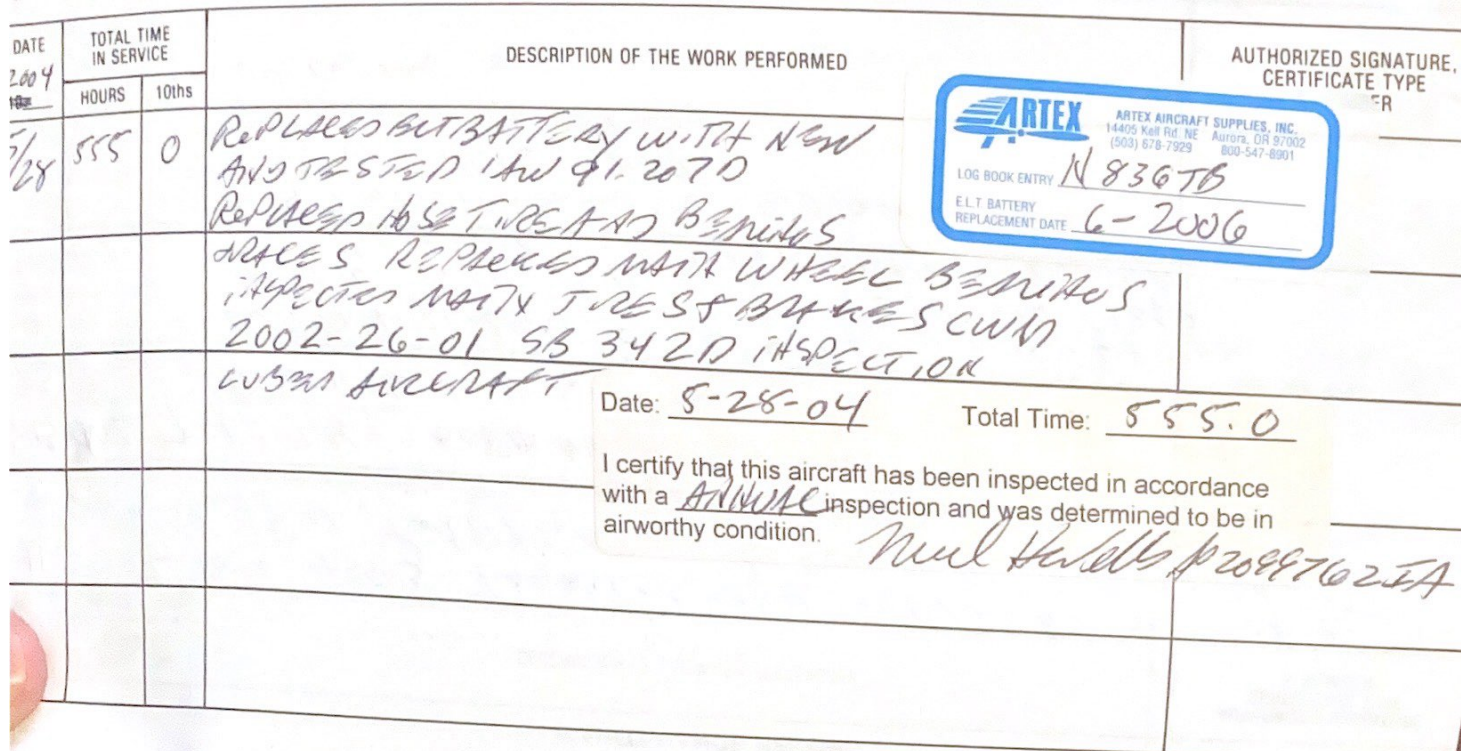 DATE
2004
TOTAL TIME
IN SERVICE
HOURS
10ths
DESCRIPTION OF THE WORK PERFORMED
AUTHORIZED SIGNATURE,
CERTIFICATE TYPE
ER
5/28 555 0
REPLACED ELT BATTERY WITH NEW
AND TESTED IAW 91.207D
REPLACED NOSE TIRE AND BEARINGS
&RACES REPACKED MAIN WHEEL BEARINGS
INSPECTED MAIN TIRES & BRAKES CWM
2002-26-01 SB 342D INSPECTION
LUBED AIRCRAFT
ARTEX
ARTEX AIRCRAFT SUPPLIES, INC.
14405 Kell Rd. NE Aurora, OR 97002
(503) 678-7929 800-547-8901
LOG BOOK ENTRY N836TB
E.L.T BATTERY
REPLACEMENT DATE 6-2006
Date: 5-28-04 Total Time: 555.0
I certify that this aircraft has been inspected in accordance
with a ANNUAL inspection and was determined to be in
airworthy condition.
2099762IA